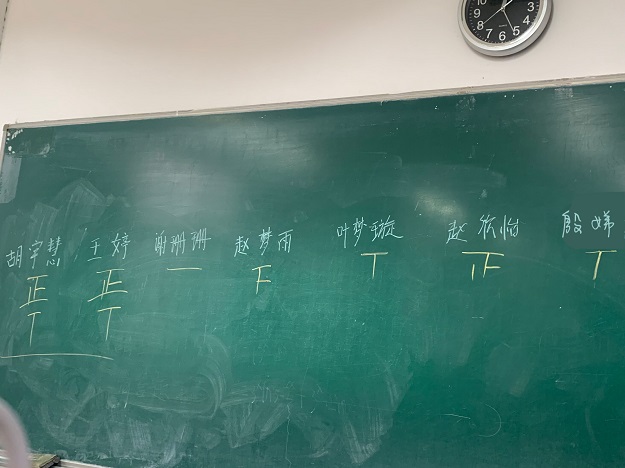 胡宇慧 王婷 谢珊珊 赵梦雨 叶梦璇 赵依怡 殷娣
正 正 一 下 丅 正 丅
丅 丅
10 2 3 4 5 6 7 8 9